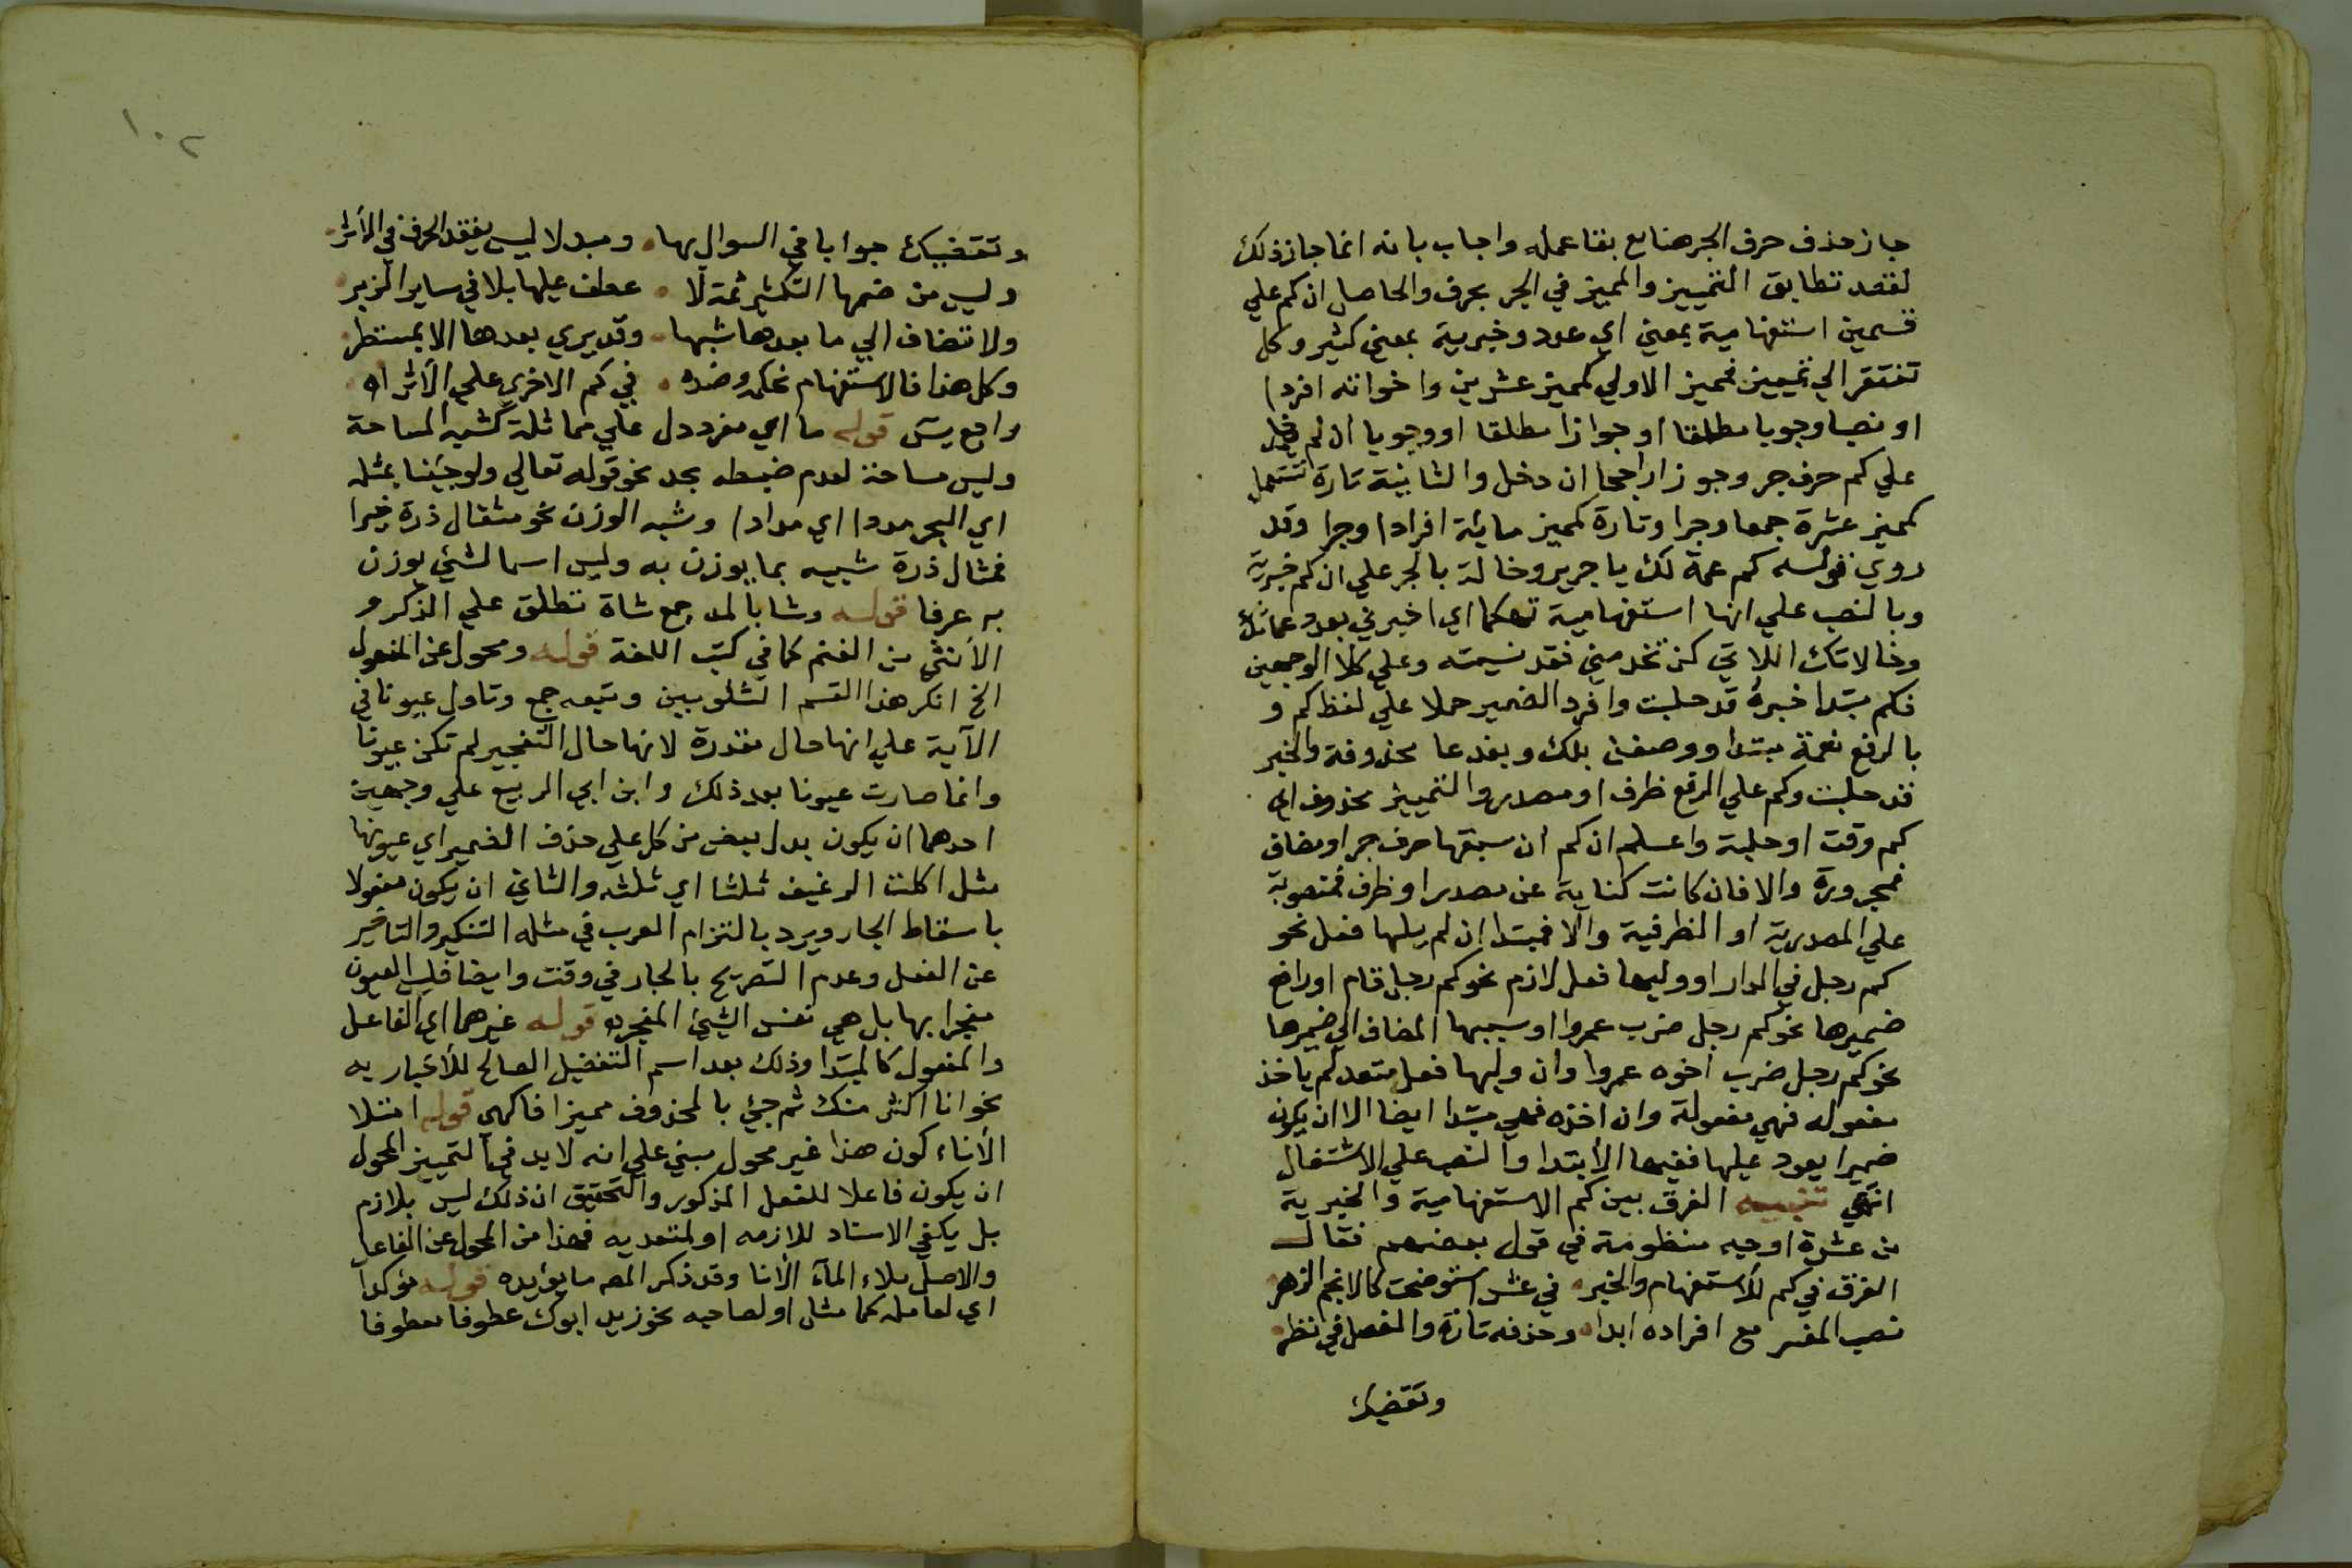 جاز حذف حرف الجر هنا مع بقا عمله واجاب بانه انما جاز ذلك
لقصد تطابق التمييز والمميز في الجر بحرف والحاصل ان كم علي
قسمين استفهامية بمعني اي عدد وخبرية بمعني كثير وكل
تفتقر الي تمييز فمميز الاولي كمميز عشرين واخواته افردا
او نصبا وجوبا مطلقا او جوازا مطلقا او وجوبا ان لم يدخل
علي كم حرف جر وجوزا راجحا ان دخل والثانية تارة تستعمل
كمميز عشرة جمعا وجرا وتارة كمميز مائة افرادا وجرا وقد
روي قوله كم عمة لك يا جرير وخالة بالجر علي ان كم خبرية
وبالنصب علي انها استفهامية تهكما اي اخبرني بعدد عماتك
وخالاتك اللاتي كن تخدمني فقد نسيته وعلي كلا الوجهين
فكم مبتدا خبره قد حلبت وافرد الضمير حملا علي لفظ كم و
بالرفع نعمة مبتدا ووصفت بلك وبفدعا محذوفة والخبر
قد حلبت وكم علي الرفع ظرف او مصدر والتمييز محذوف اي
كم وقت او حلبة واعلم ان كم ان سبقها حرف جر او مضاف
فمجرورة والا فان كانت كناية عن مصدر او ظرف فمنصوبة
علي المصدرية او الظرفية والا فمبتدا ان لم يلها فعل نحو
كم رجل في الدار او وليها فعل لازم نحو كم رجل قام او رافع
ضميرها نحو كم رجل ضرب عمروا او سببها المضاف الي ضميرها
نحو كم رجل ضرب اخوه عمروا وان وليها فعل متعد لم ياخذ
مفعوله فهي مفعولة وان اخذه فهي مبتدا ايضا الا ان يكون
ضميرا يعود عليها ففيها الابتدا والنصب علي الاشتغال
انتهي تنبيه الفرق بين كم الاستفهامية والخبرية
من عشرة اوجه منظومة في قول بعضهم فقال
الفرق في كم للاستفهام والخبر في عشر استوضحت كالانجم الزهر
نصب المفسر مع افراده ابدا وحذفه تارة والفصل في نظر
وتقتضيك
١٠٢
وتقتضيك جوابا في السوال بها ومبدلا ليس يفقد الحرف في الأثر
وليس من ضمها التكثير ثمة لا عطف عليها بلا في ساير الزبر
ولا تضاف الي ما بعدها شبها وقد يري بعدها الا بمستطر
وكل هذا فالاستفهام تحكمه وضده في كم الاخري علي الأثر اه
راجع يس قوله ما اي مفرد دل علي مماثلة كشبه المساحة
وليس مساحة لعدم ضبطه بحد نحو قوله تعالي ولو جئنا بمثله
اي البحر مددا اي مدادا وشبه الوزن نحو مثقال ذرة خيرا
فمثال ذرة شبيه بما يوزن به وليس اسما لشئ يوزن
به عرفا قوله وشا بالمد جمع شاة تطلق علي الذكر و
الأنثي من الغنم كما في كتب اللغة قوله ومحول عن المفعول
الخ انكر هذا القسم الشلوبين وتبعه جمع وتاول عيونا في
الآية علي انها حال مقدرة لانها حال التفجير لم تكن عيونا
وانما صارت عيونا بعد ذلك وابن ابي الربيع علي وجهين
احدهما ان يكون بدل بعض من كل علي حذف الضمير اي عيونها
مثل اكلت الرغيف ثلثا اي ثلثه والثاني ان يكون مفعولا
باسقاط الجار ويرد بالتزام العرب في مثله التنكير والتاخير
عن الفعل وعدم التصريح بالجار في وقت وايضا فليس العيون
مفجرا بها بل هي نفس الشئ المفجر قوله غيرهما اي الفاعل
والمفعول كالمبتدا وذلك بعد اسم التفضيل الصالح للأخبار به
نحو انا اكثر منك ثم جيئ بالمحذوف مميزا فاكهي قوله امتلا
الأناء كون هذا غير محول مبني علي انه لا بد في التمييز المحول
ان يكون فاعلا للفعل المذكور والتحقيق ان ذلك ليس بلازم
بل يكفي الاسناد للازمه او لمتعديه فهذا من المحول عن الفاعل
والاصل ملاء المآء الأنا وقد ذكر المصـ ما يؤيده قوله مؤكدا
اي لعامله كما مثل او لصاحبه نحو زيد ابوك عطوفا معطوفا